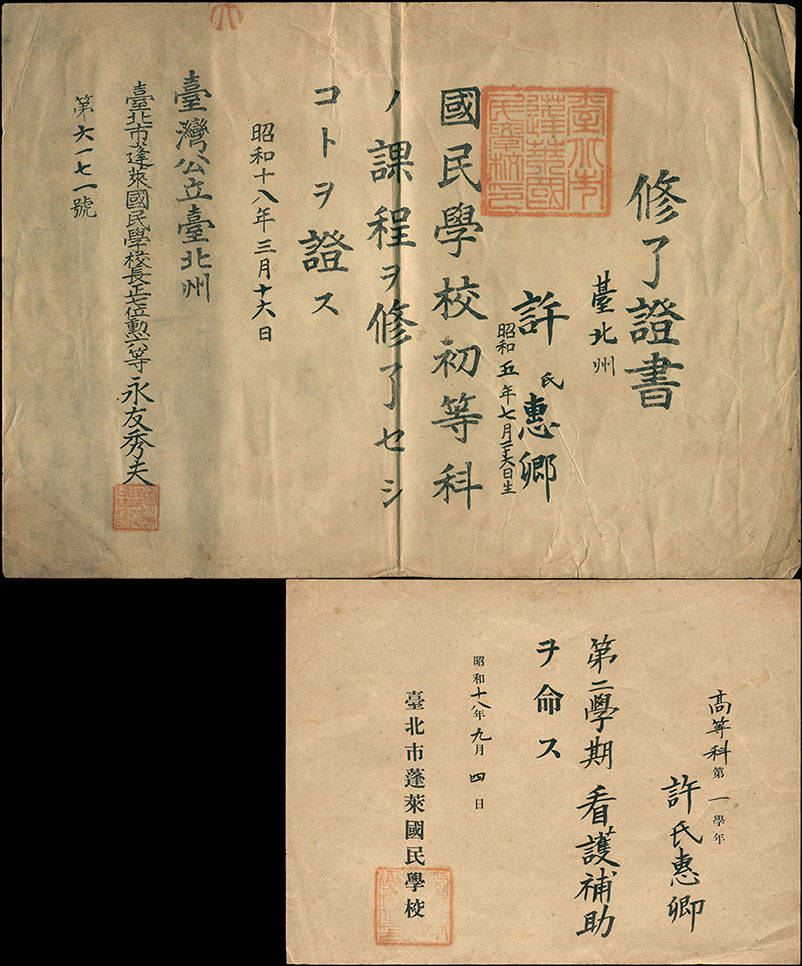 修了證書
臺北州
許氏惠卿
昭和五年七月二十六日生
國民學校初等科
ノ課程ヲ修了セシ
コトヲ證ス
昭和十八年三月十六日
臺灣公立臺北州
臺北市蓬萊國民學校長正七位勲六等永友秀夫
第六一七一號
高等科第一學年
許氏惠卿
第二學期看護補助
ヲ命ス
昭和十八年九月四日
臺北市蓬萊國民學校